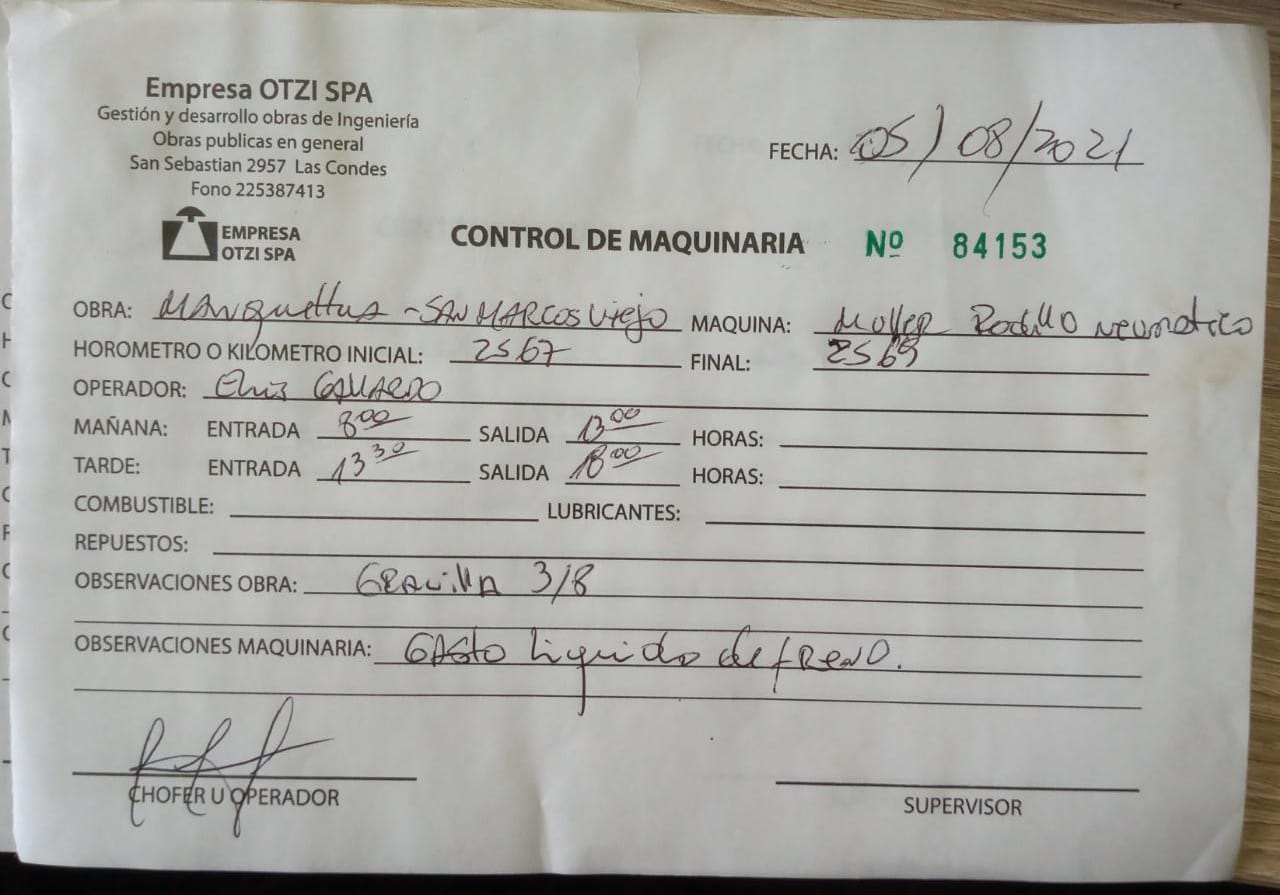 Empresa OTZI SPA
Gestión y desarrollo obras de Ingeniería
Obras publicas en general
San Sebastian 2957 Las Condes
Fono 225387413
EMPRESA
OTZI SPA
FECHA: 05/08/2021
CONTROL DE MAQUINARIA Nº 84153
OBRA: - SAN MARCOS Viejo MAQUINA: Rodillo Neumatico
HOROMETRO O KILOMETRO INICIAL: 2567 FINAL: 2569
OPERADOR: GALLARDO
MAÑANA: ENTRADA 8 00 SALIDA 13 00 HORAS:
TARDE: ENTRADA 13 30 SALIDA 18 00 HORAS:
COMBUSTIBLE: LUBRICANTES:
REPUESTOS:
OBSERVACIONES OBRA: GRAVILLA 3/8
OBSERVACIONES MAQUINARIA: GASto Liquido de fReNO.
CHOFER U OPERADOR
SUPERVISOR